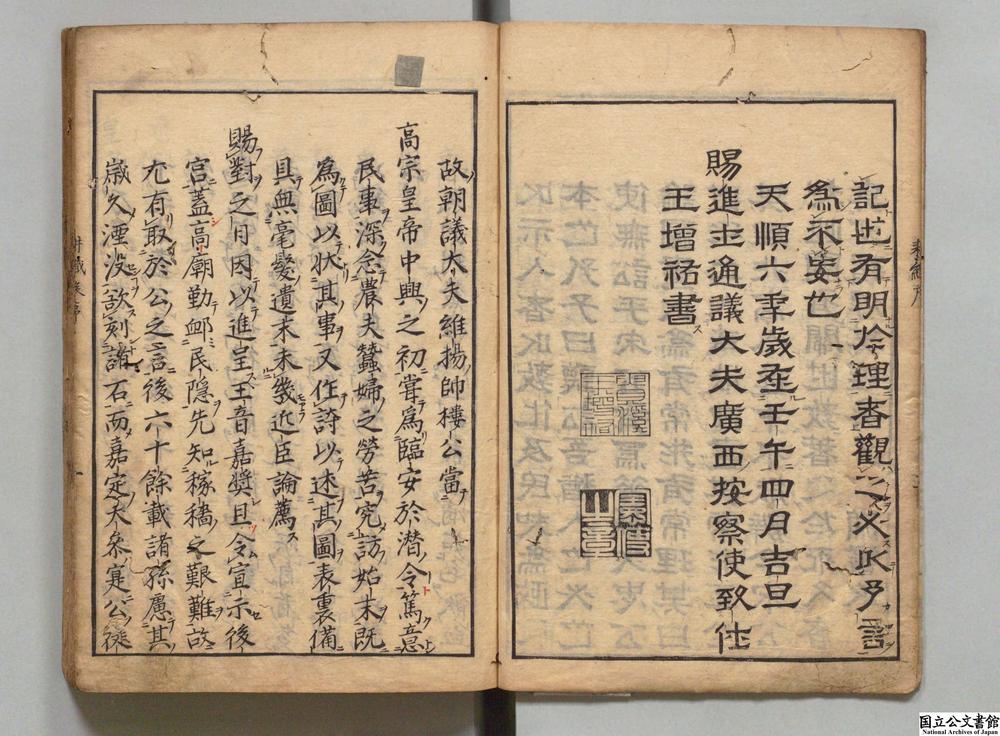 記也有明於理者觀之必以予言
為不妄也
天順六年歲在壬午四月吉旦
賜進士通議大夫廣西按察使致仕
王增祐書
故朝議大夫維揚帥樓公當
高宗皇帝中興之初嘗為臨安於潛令篤意
民事深念農夫蠶婦之勞苦究訪始末既
為圖以狀其事又作詩以述其圖表裏備
具無毫髮遺末未幾近臣論薦
賜對之日因以進呈玉音嘉獎且令宣示後
宮蓋高廟勤邺民隱先知稼穡之艱難故
尤有取於公之言後六十餘載諸孫慮其
歲久湮没欲刻諸石而嘉定大參寔公徒
国立公文書館
National Archives of Japan